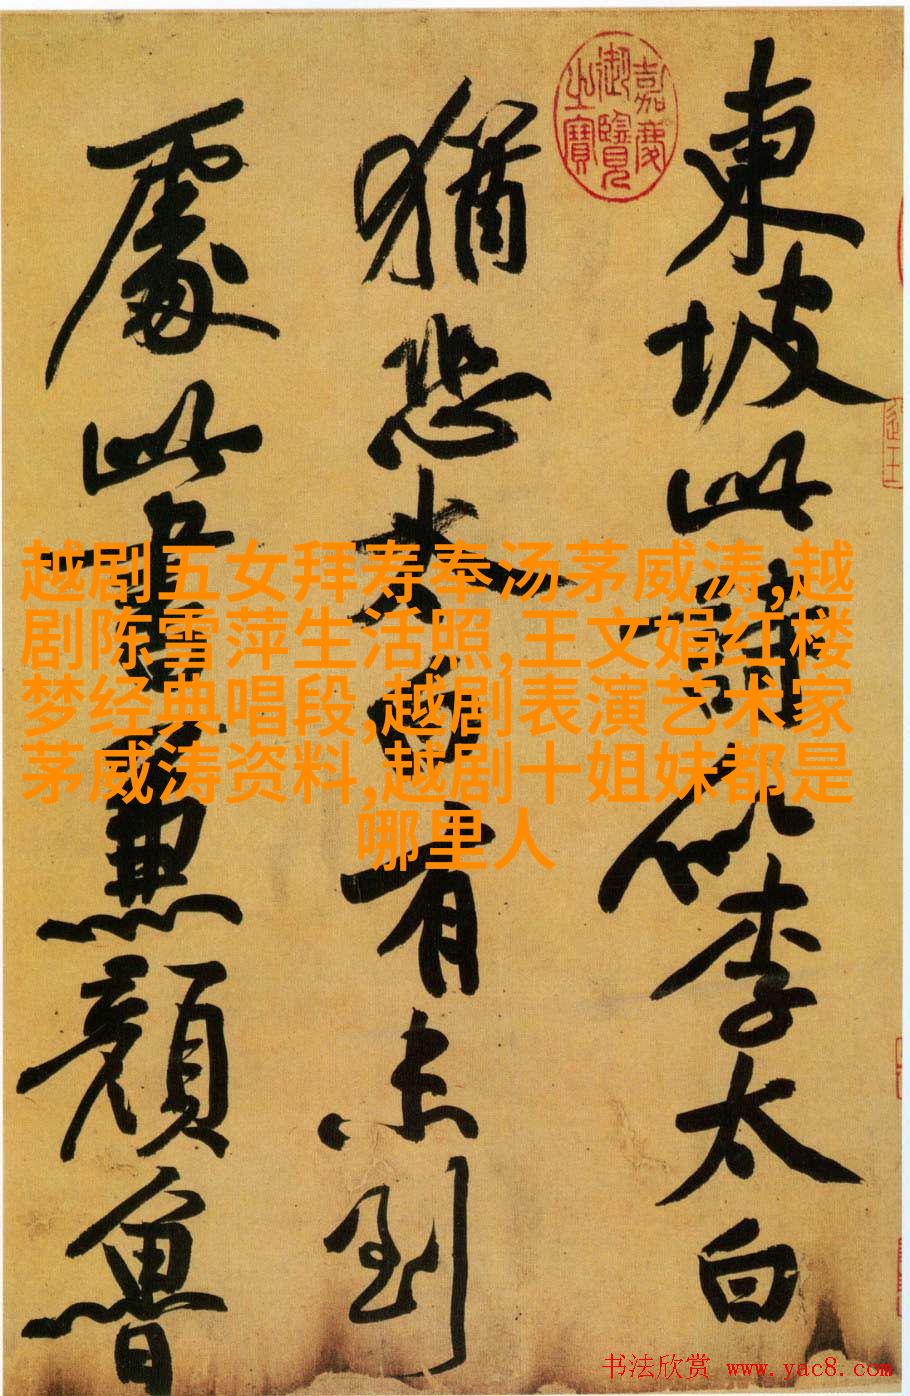 東坡此詩似李太白
猶恐太白有未到
處此書兼顏魯
嘉慶
御覽
之寶
越剧五女拜寿奉汤茅威涛,越
剧陈雪萍生活照,王文娟红楼
梦经典唱段,越剧表演艺术家
茅威涛资料,越剧十姐妹都是
哪里人
书法欣赏 www.yac8.com